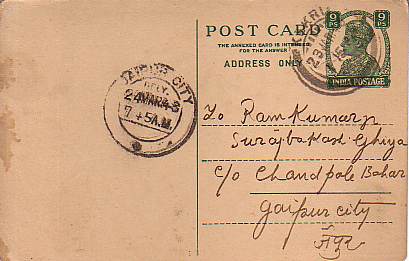 POST CARD
THE ANNEXED CARD IS INTENDED
FOR THE ANSWER
ADDRESS ONLY
9 PS
9 PS
INDIA POSTAGE
JAIPUR CITY
DELY.
24 MAR 45
7+5 A.M.
23 MAR
To Ramkumarji
Surajbaksh Ghiya
C/o Chandpole Bahar
Jaipur city
जैपुर